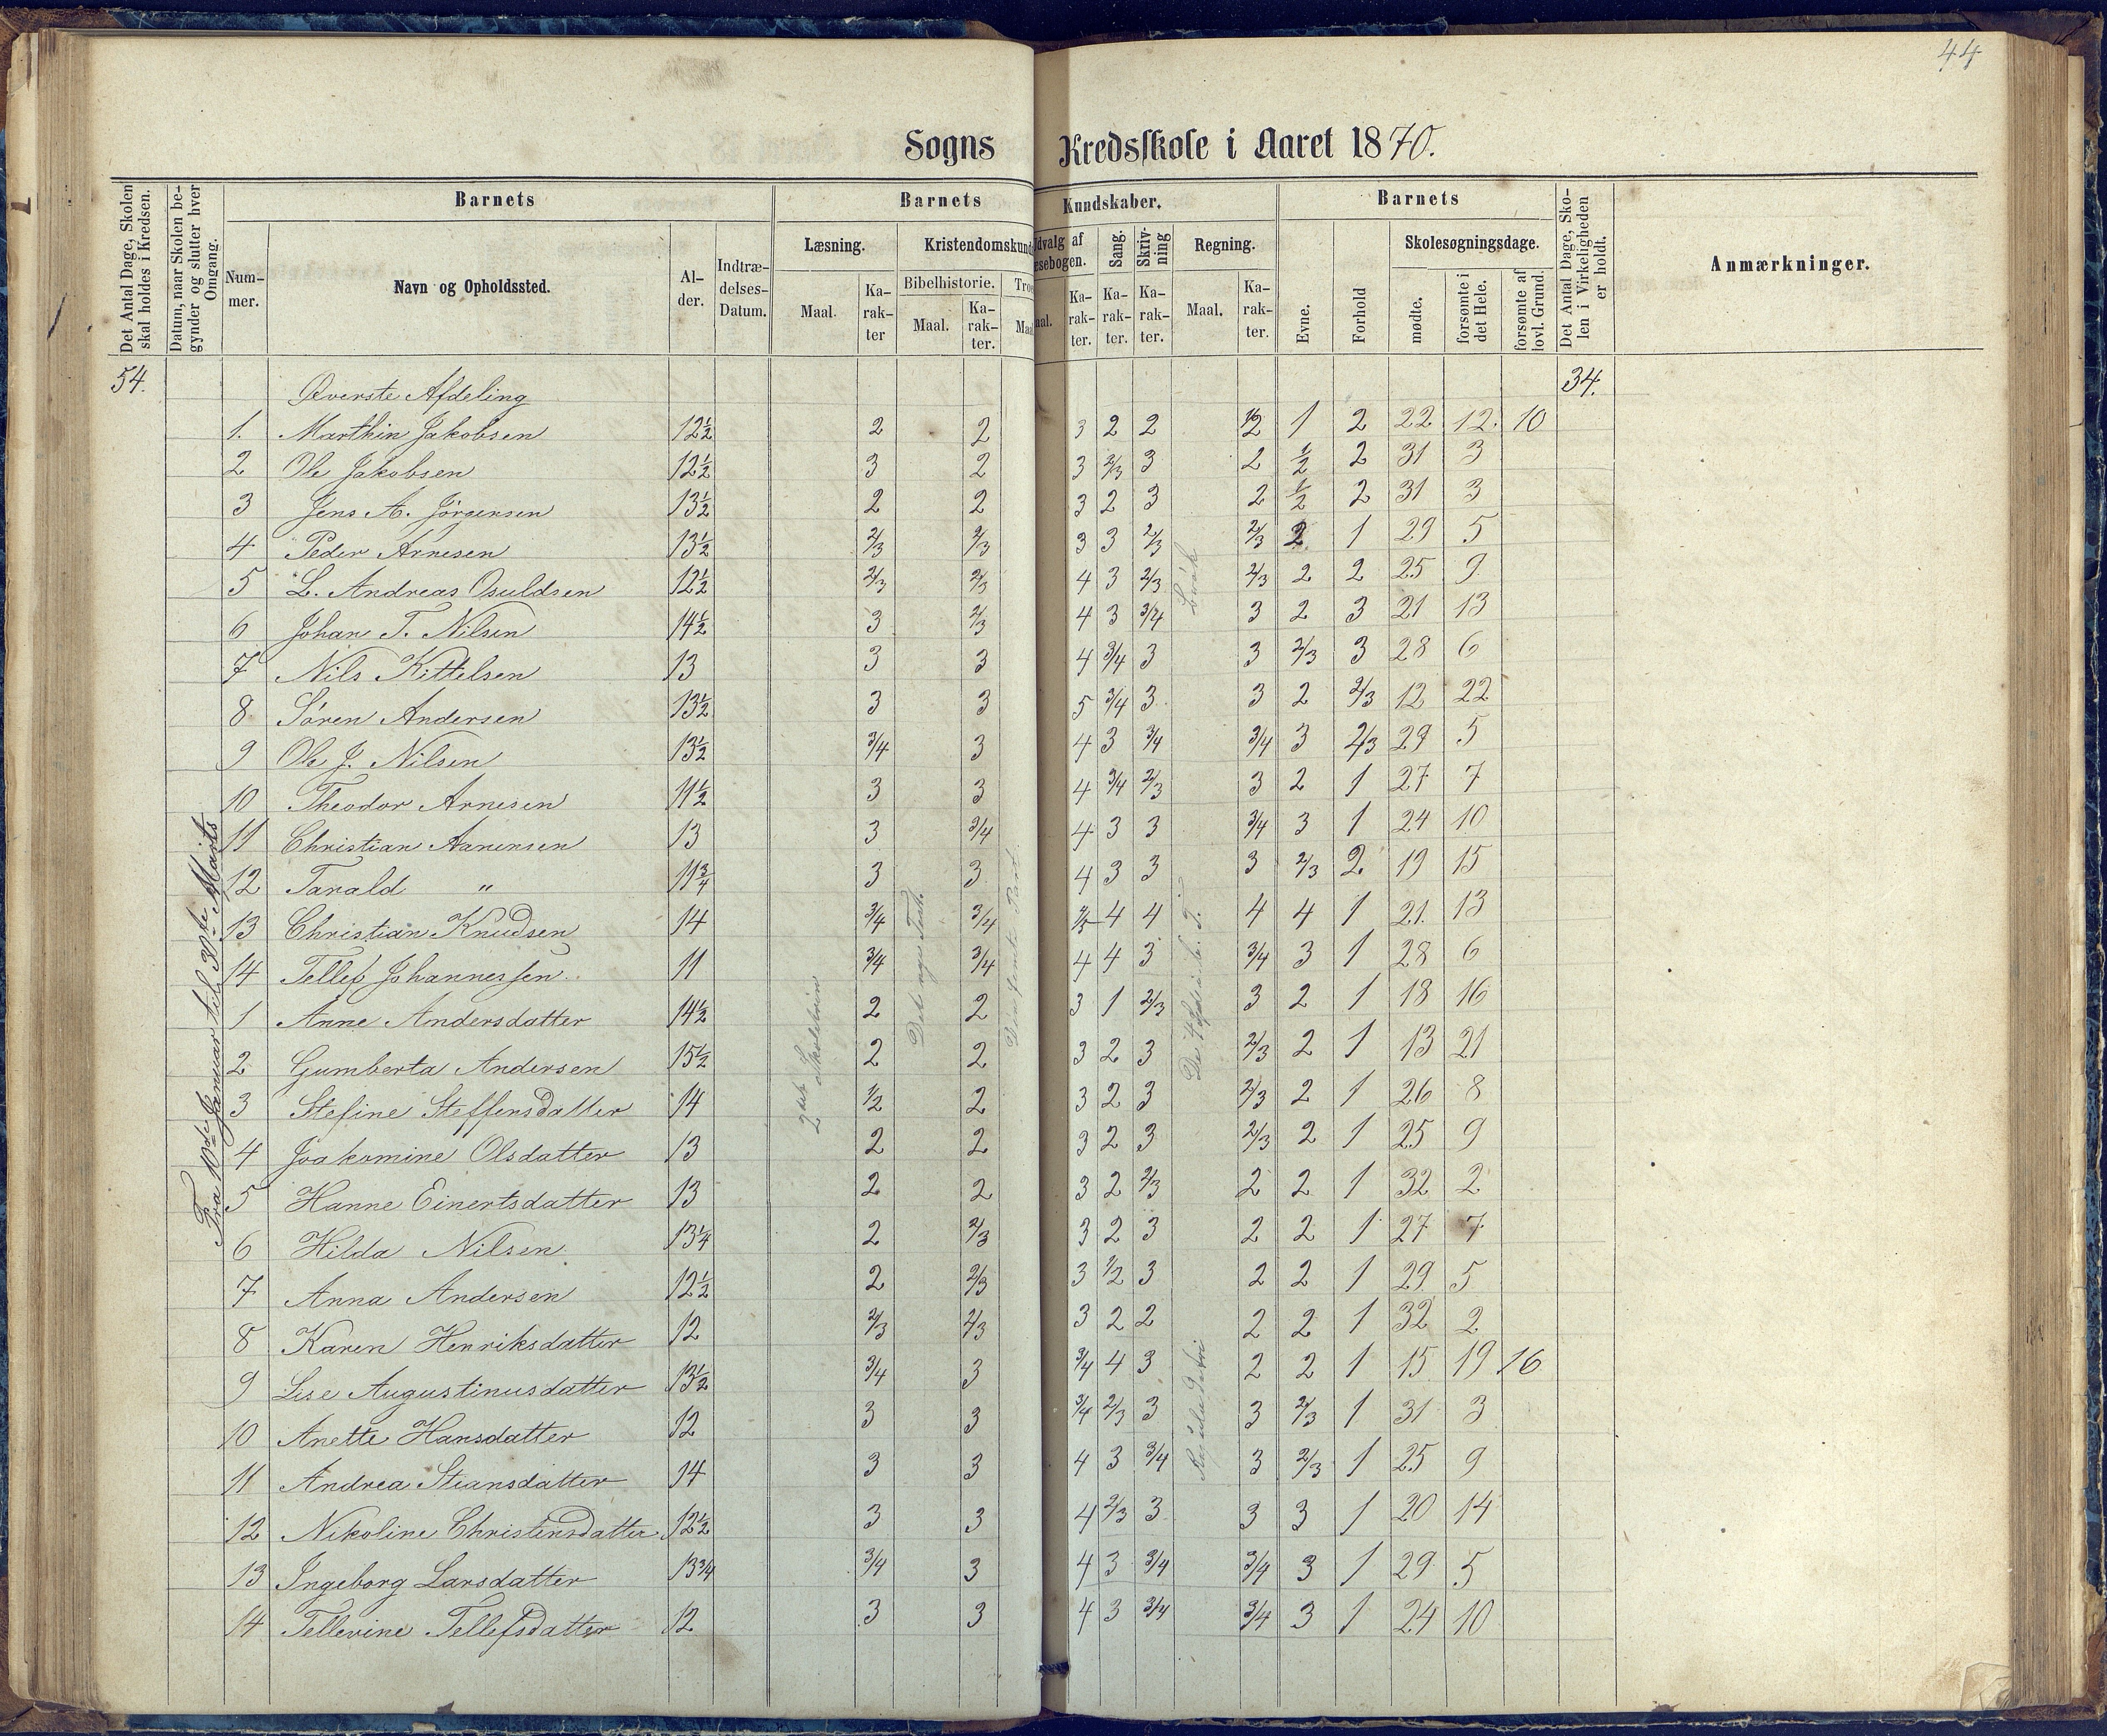 44
Sogns Kredsskole i Aaret 1870.
Det Antal Dage, Skolen skal holdes i Kredsen.
Datum, naar Skolen begynder og slutter hver Omgang.
Barnets
Barnets Kundskaber.
Barnets
Det Antal Dage, Skolen i Virkeligheden er holdt.
Anmærkninger.
Nummer.
Navn og Opholdssted.
Alder.
Indtrædelses-Datum.
Læsning.
Kristendomskund
dvalg af
esebogen.
Sang.
Skrivning
Regning.
Evne.
Forhold
Skolesøgningsdage.
Bibelhistorie.
Troe
Maal.
Karakter
Maal.
Karakter.
Maal
aal.
Karakter.
Karakter.
Karakter.
Maal.
Karakter.
mødte.
forsømte i det Hele.
forsømte af lovl. Grund.
54. Øverste Afdeling 34.
1. Marthin Jakobsen 12½ 2 2 3 2 2 1/2 1 2 22 12. 10
2 Ole Jakobsen 12½ 3 2 3 2/3 3 2 ½ 2 31 3
3 Jens A. Jörgensen 13½ 2 2 3 2 3 2 ½ 2 31 3
4 Peder Arnesen 13½ 2/3 2/3 3 3 2/3 2/3 2 1 29 5
5 L. Andreas Osuldsen 12½ 2/3 2/3 4 3 2/3 2/3 2 2 25 9
6 Johan T. Nilsen 14½ 3 2/3 4 3 3/4 3 2 3 21 13
7 Nils Kittelsen 13 3 3 4 3/4 3 3 2/3 3 28 6
8 Sören Andersen 13½ 3 3 5 3/4 3 3 2 2/3 12 22
9 Ole J. Nilsen 13½ 3/4 3 4 3 3/4 3/4 3 2/3 29 5
10 Theodor Arnesen 11½ 3 3 4 3/4 2/3 3 2 1 27 7
11 Christian Aanensen 13 3 3/4 4 3 3 3/4 3 1 24 10
12 Tarald " 11¾ 3 3 4 3 3 3 2/3 2 19 15
13 Christian Knudsen 14 3/4 3/4 4/5 4 4 4 4 1 21 13
14 Tellef Johannessen 11 3/4 3/4 4 4 3 3/4 3 1 28 6
1 Anne Andersdatter 14½ 2 2 3 1 2/3 3 2 1 18 16
2 Gumberta Andersen 15½ 2 2 3 2 3 2/3 2 1 13 21
3 Stefine Steffensdatter 14 1/2 2 3 2 3 2/3 2 1 26 8
4 Joakomine Olsdatter 13 2 2 3 2 3 2/3 2 1 25 9
5 Hanne Einertsdatter 13 2 2 3 2 2/3 2 2 1 32 2
6 Hilda Nilsen 13¼ 2 2/3 3 2 3 2 2 1 27 7
7 Anna Andersen 12½ 2 2/3 3 1/2 3 2 2 1 29 5
8 Karen Henriksdatter 12 2/3 2/3 3 2 2 2 2 1 32 2
9 Lise Augustinusdatter 13½ 3/4 3 3/4 4 3 2 2 1 15 19 16
10 Anette Hansdatter 12 3 3 3/4 2/3 3 3 2/3 1 31 3
11 Andrea Stiansdatter 14 3 3 4 3 3/4 3 2/3 1 25 9
12 Nikoline Christensdatter 12½ 3 3 4 2/3 3 3 3 1 20 14
13 Ingeborg Larsdatter 13 3/4 3/4 3 4 3 3/4 3/4 3 1 29 5
14 Tellevine Tellefsdatter 12 3 3 4 3 3/4 3/4 3 1 24 10
Fra 10de Januar til 30te Marts
2det Skoletrin
Det nye Test.
Den femte Part
Brök
Reguladetri